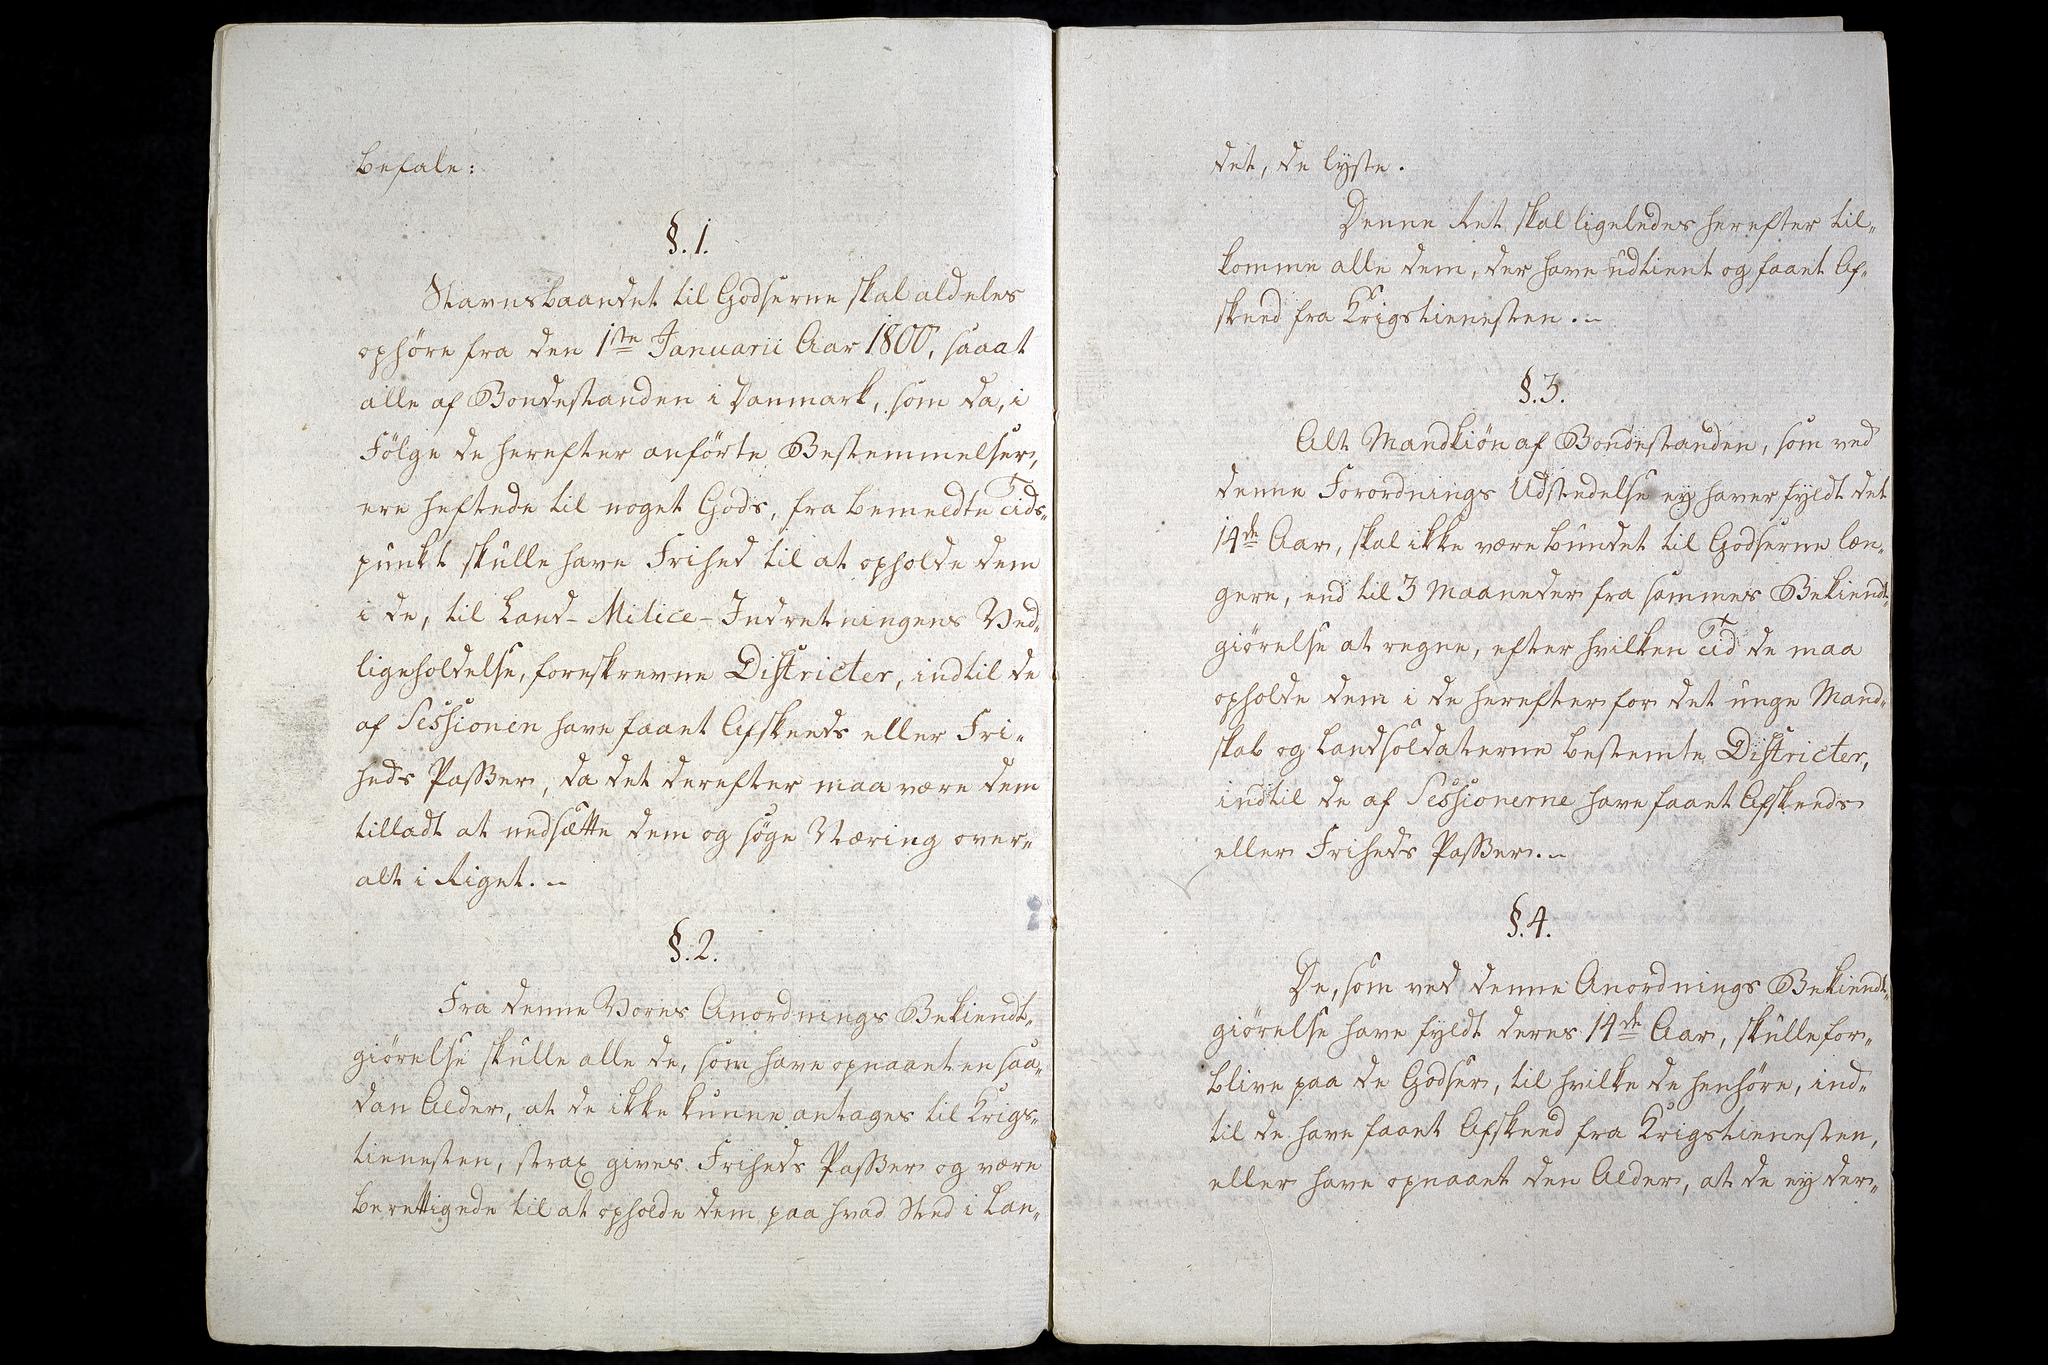 befale:
§. 1.
Stavnsbaandet til Godserne skal aldeles
ophöre fra den 1ste Januarii Aar 1800, saaat
alle af Bondestanden i Danmark, som da, i
Fölge de herefter anförte Bestemmelser,
ere heftede til noget Gods, fra bemeldte Tids-
punkt skulle have Frihed til at opholde dem
i de, til Land-Milice-Indretningens Ved-
ligeholdelse, foreskrevne Districter, indtil de
af Sessionen have faaet Afskeeds eller Fri-
heds Passer, da det derefter maa være dem
tilladt at nedsætte dem og söge Næring over-
alt i Riget. -
§. 2.
Fra denne Vores Anordnings Bekiendt-
giörelse skulle alle de, som have opnaaet en saa-
dan Alder, at de ikke kunne antages til Krigs-
tienesten, strax gives Friheds Passer og være
berettigede til at opholde dem paa hvad Sted i Lan-
det, de lyste.
Denne Ret skal ligeledes herefter til-
komme alle dem, der have udtient og faaet Af-
skeed fra Krigstienesten. -
§. 3.
Alt Mandkiön af Bondestanden, som ved
denne Forordnings Udstedelse ey haver fyldt det
14de Aar, skal ikke være bundet til Godserne læn-
gere, end til 3 Maaneder fra sammes Bekiendt-
giörelse at regne, efter hvilken Tid de maa
opholde dem i de herefter for det unge Mand-
skab og Landsoldaterne bestemte Districter,
indtil de af Sessionerne have faaet Afskeeds
eller Friheds Passer. -
§. 4.
De, som ved denne Anordnings Bekiendt-
giörelse have fyldt deres 14de Aar, skulle for-
blive paa de Godser, til hvilke de henhöre, ind-
til de have faaet Afskeed fra Krigstienesten,
eller have opnaaet den Alder, at de ey der-